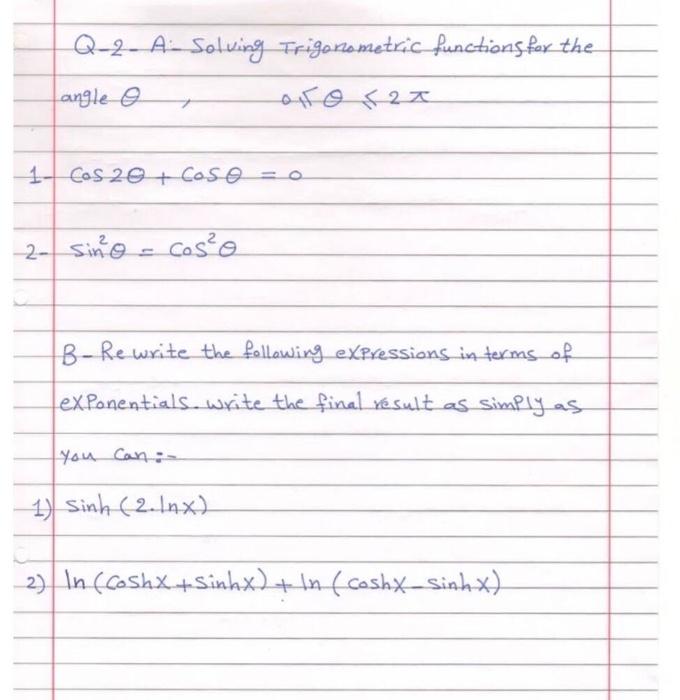 Q-2- A:- Solving Trigonometric functions for the
angle θ , 0 ≤ θ ≤ 2π
1- Cos 2θ + Cos θ = 0
2- Sin²θ = Cos²θ
B- Re write the following expressions in terms of
exponentials. write the final result as simply as
you can :-
1) Sinh (2.lnx)
2) ln (Coshx + sinhx) + ln (coshx - sinhx)